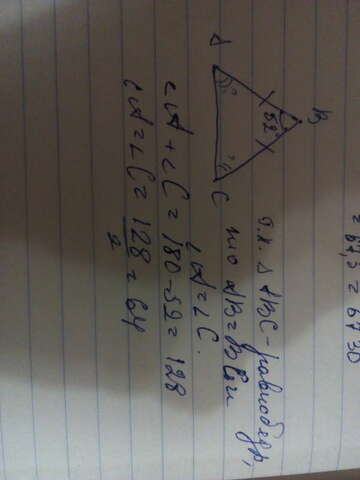 = 67,5 = 67°30
B
52°
A
C
т.к. △ ABC - равнобедр,
то AB=BC и
∠A=∠C.
∠A+∠C = 180-52= 128
∠A=∠C= 128/2 = 64